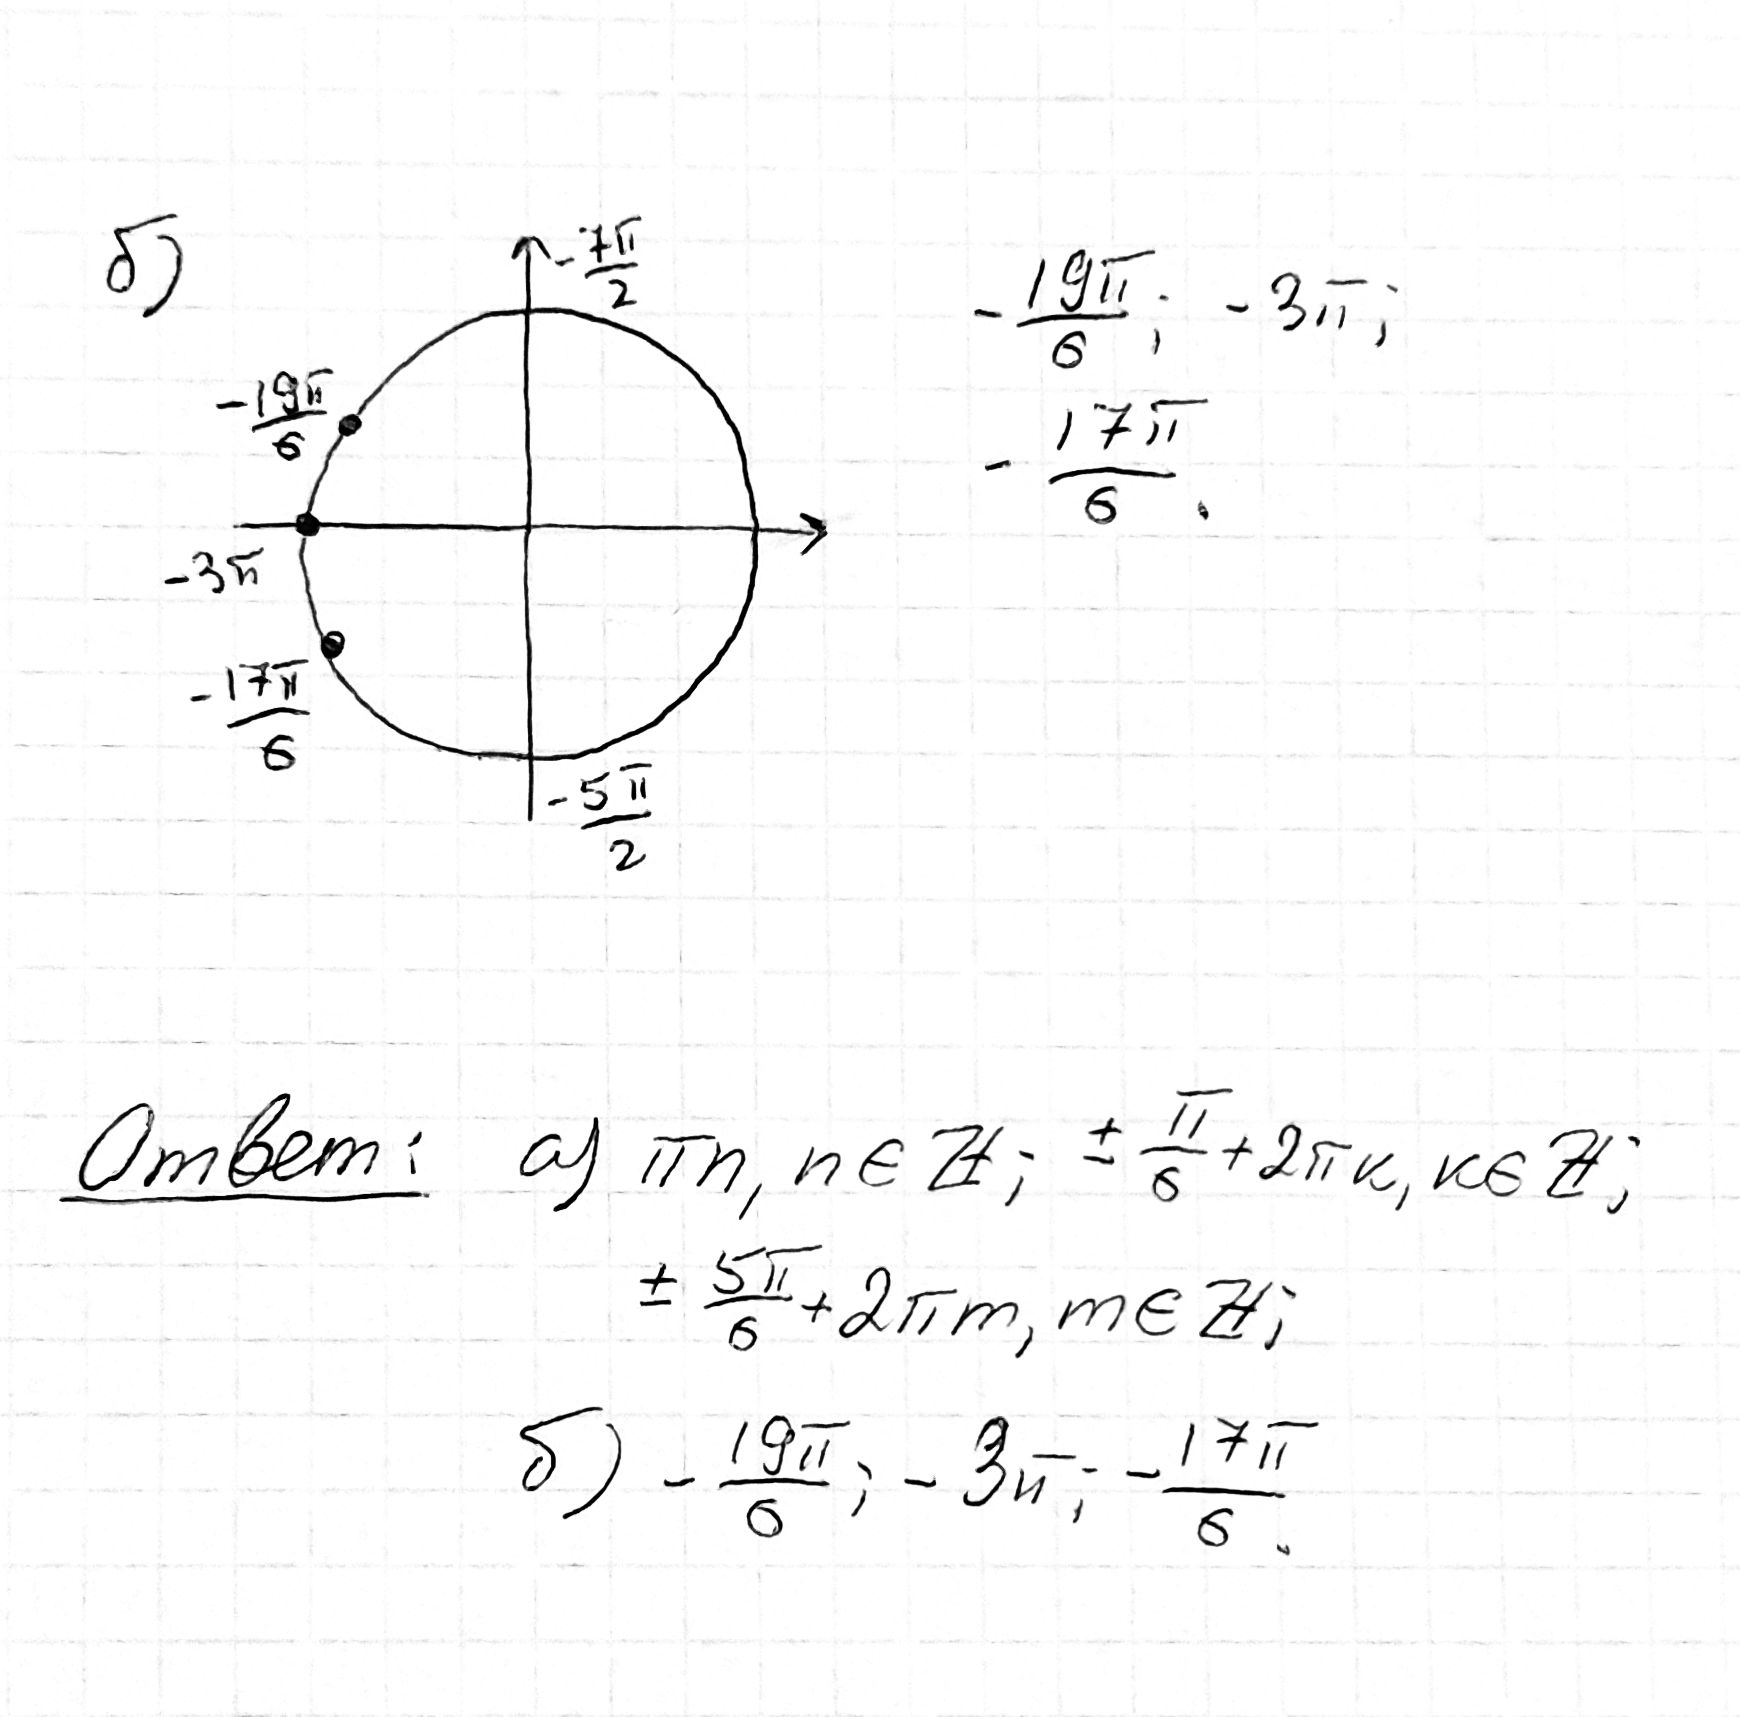 б)
-7π/2
-19π/6
-3π
-17π/6
-5π/2
-19π/6; -3π;
-17π/6.
Ответ: а) πn, n∈ℤ; ±π/6+2πк, к∈ℤ;
±5π/6+2πm, m∈ℤ;
б) -19π/6; -3π; -17π/6.